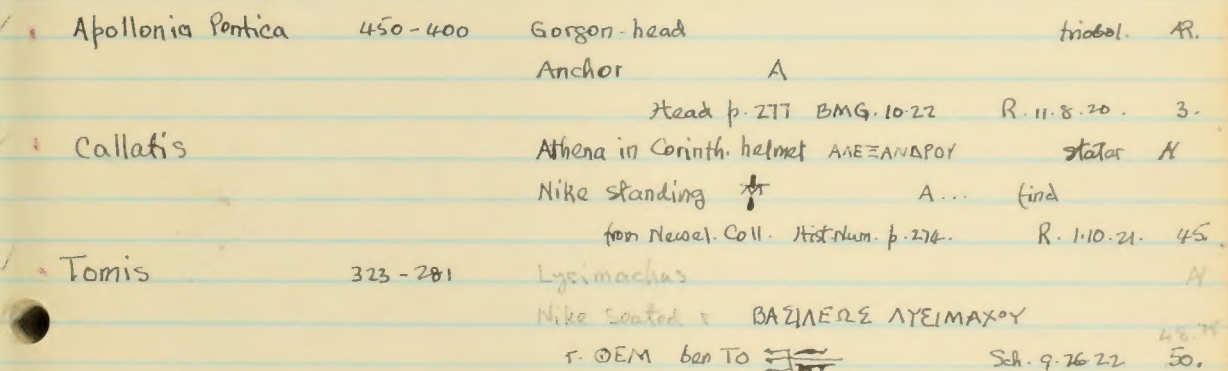 Apollonia Pontica 450-400 Gorgon-head triobol. AR.
Anchor A
Head p. 277 BMG. 10.22 R. 11.8.20. 3.
Callatis Athena in Corinth. helmet ΑΛΕΞΑΝΔΡΟΥ stater N
Nike standing A... find
from Newel. Coll. Hist Num. p. 274. R. 1.10.21. 45.
Tomis 323-281 Lysimachus N
Nike seated r ΒΑΣΙΛΕΩΣ ΛΥΣΙΜΑΧΟΥ
r. ΘΕΜ ben TO Sch. 9.26.22 50.